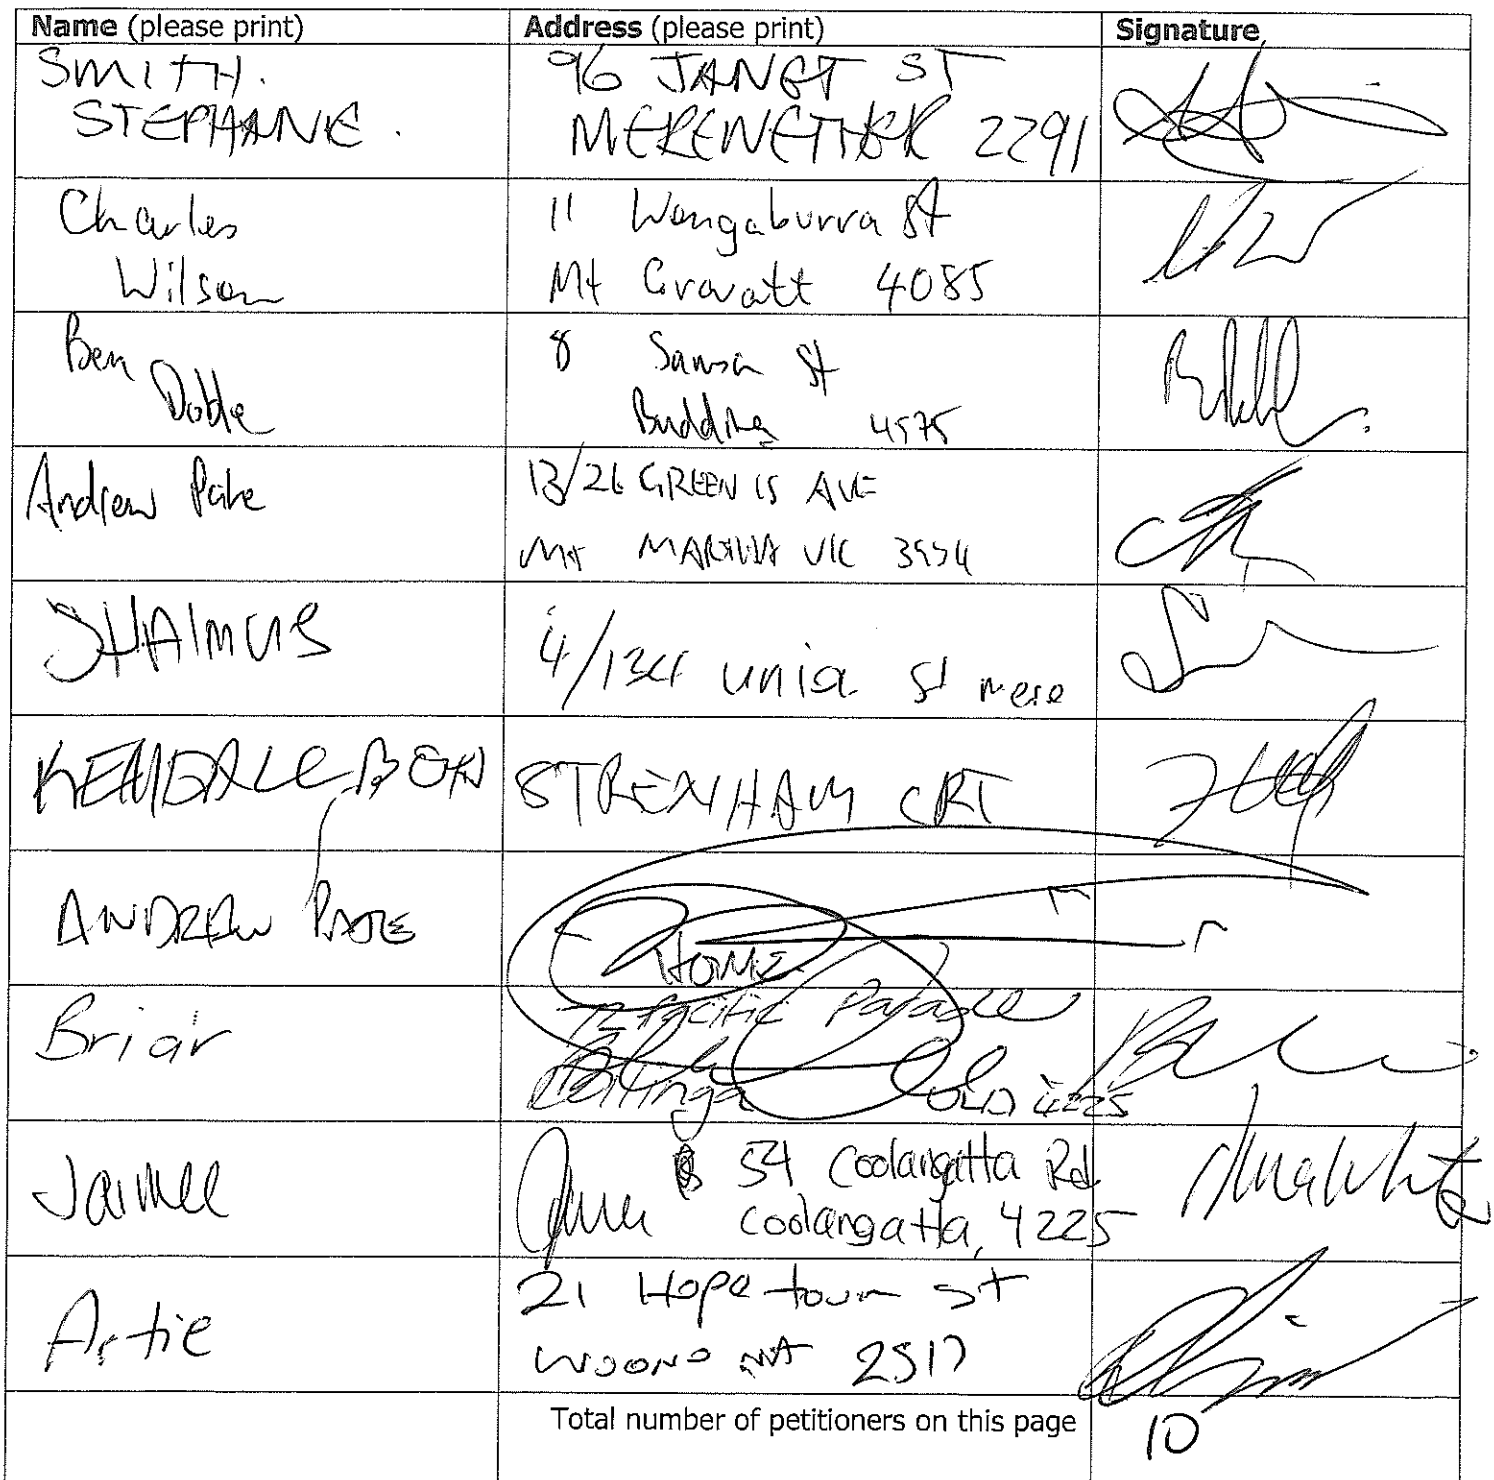 Name (please print) Address (please print) Signature
SMITH. 96 JANET ST
STEPHANIE. MEREWETHER 2291
Charles 11 Wongaburra St
Wilson Mt Gravatt 4085
Ben 8 St
Doble Buddina 4575
Andrew Pate 13/26 GREEN IS AVE
Mt MARTHA VIC 3934
SHAIMUS 4/134 union St mere
KENDALL BON 8 TRENHAM CRT
ANDREW PATE HOME
Briar 72 Pacific Parade
Bilinga QLD 4225
Jaimee 54 Coolangatta Rd
Coolangatta, 4225
Artie 21 Hopetoun St
WOONONA 2517
Total number of petitioners on this page 10